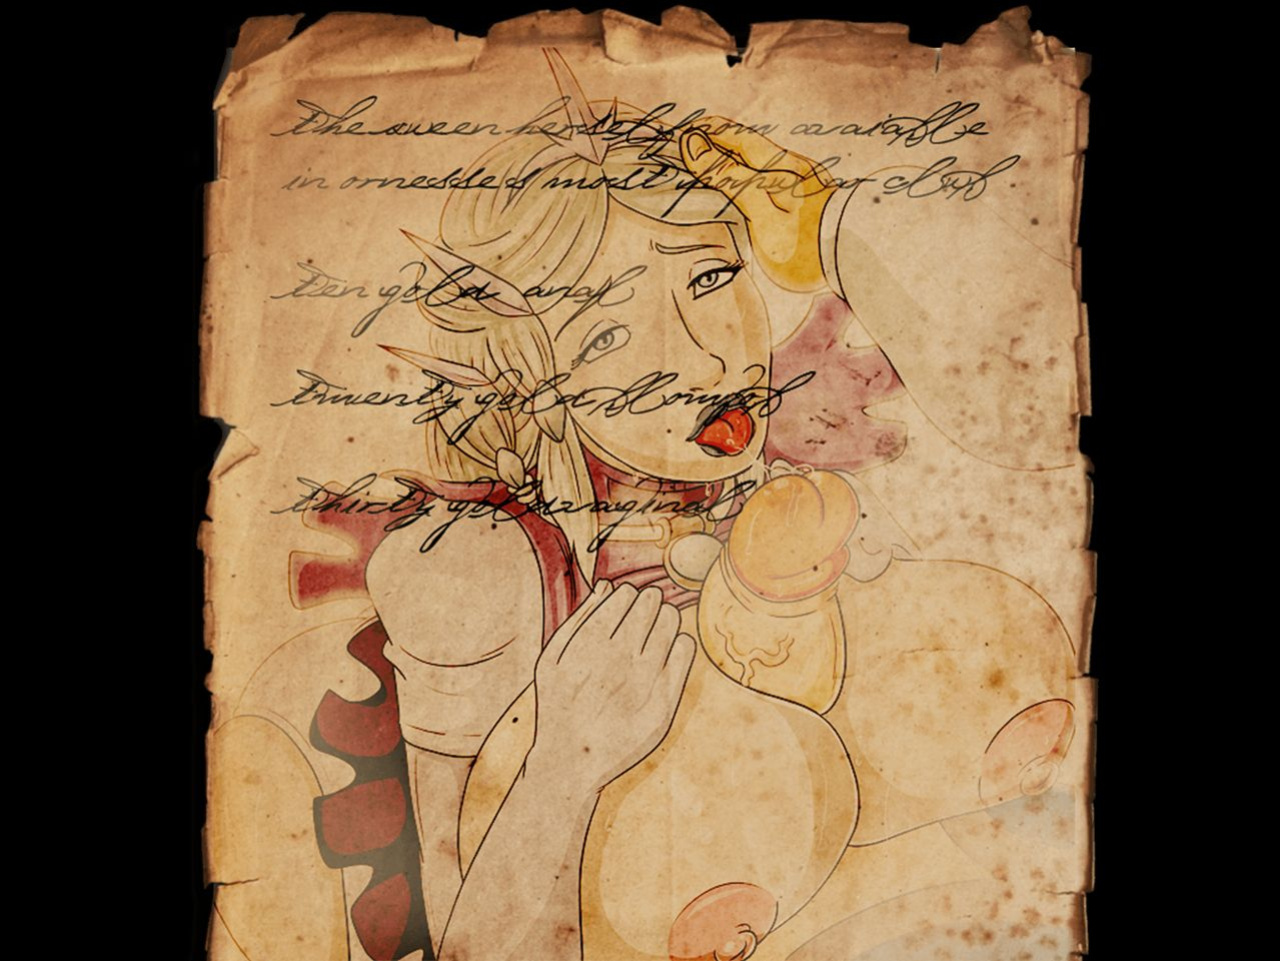 The queen herself from available
in ornesse's most popular club
Ten gold anal
twenty gold blowjob
thirty gold vaginal